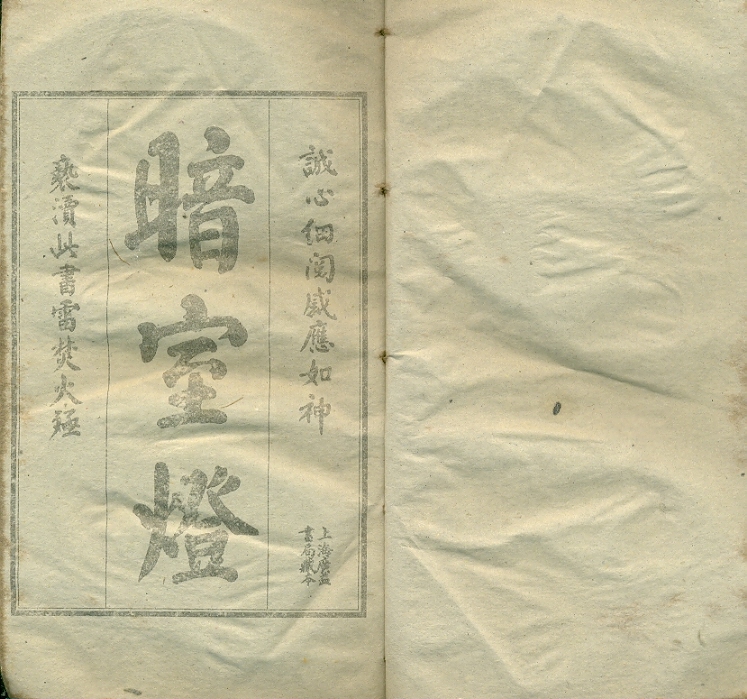 誠心佃閲感應如神
上海廣益
書局藏本
暗室燈
褻瀆此書雷焚火殛